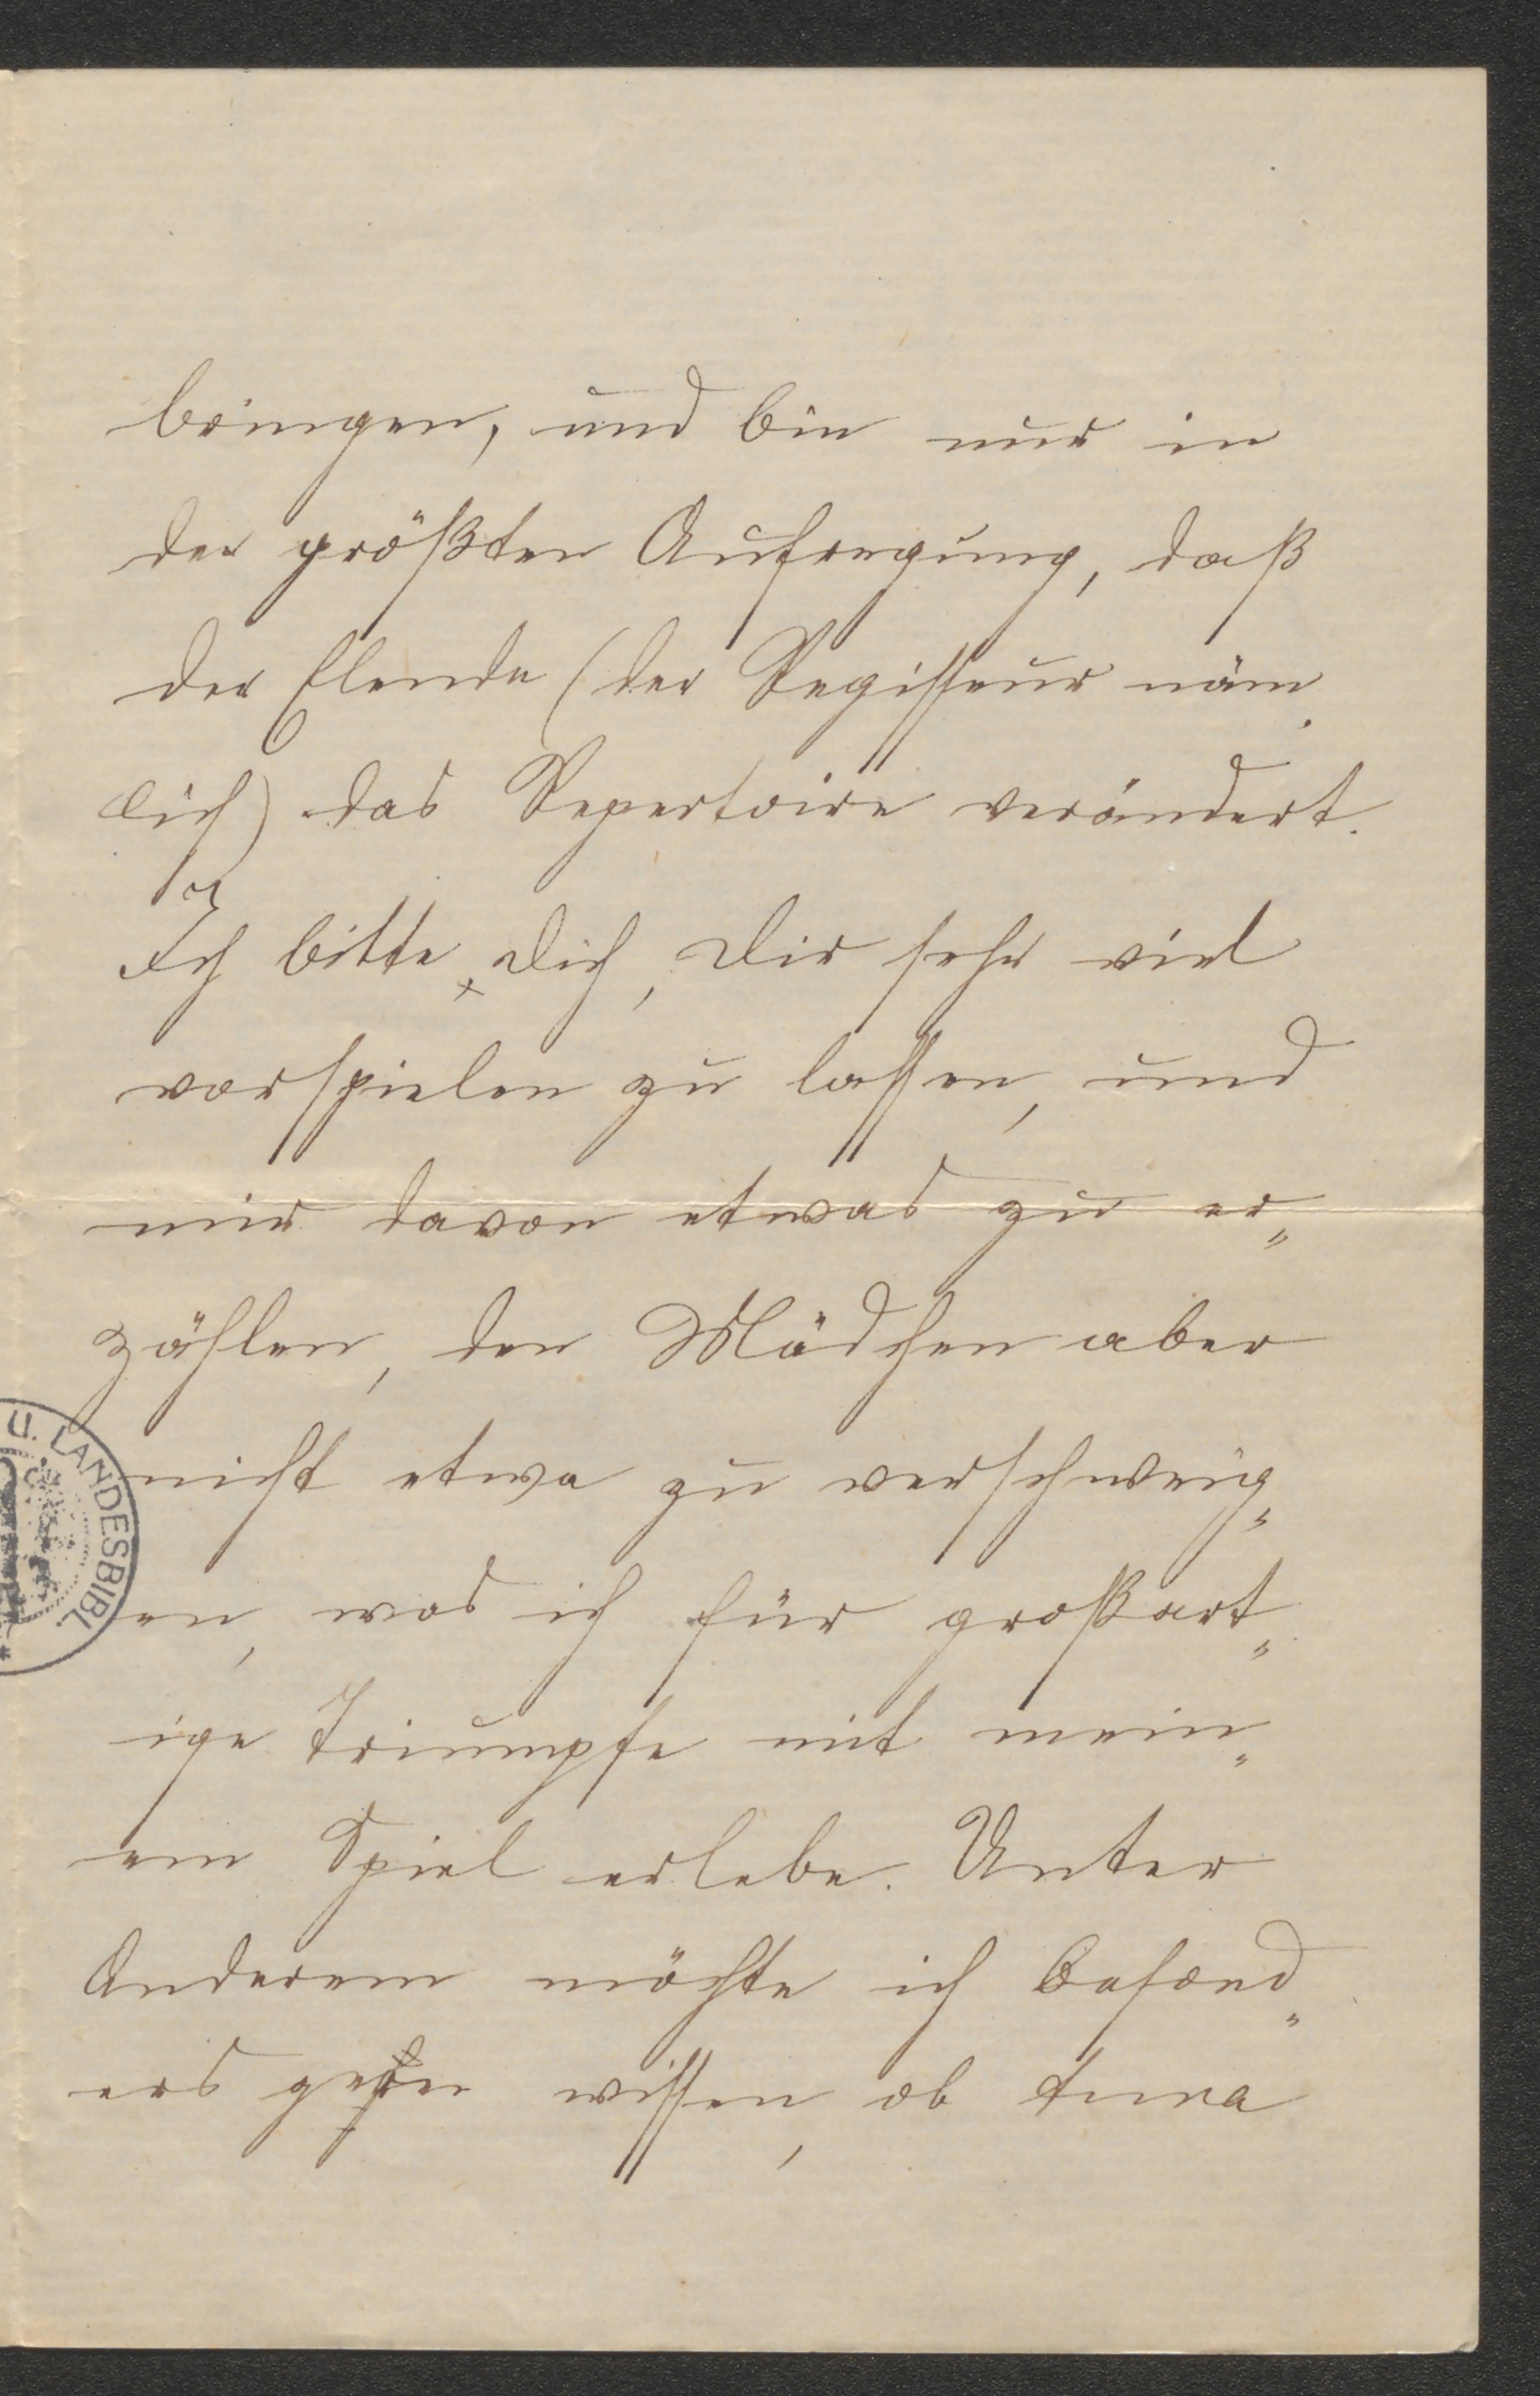 bringen, und bin nur in
der größten Aufregung, daß
der Elende (der Regisseur näm
lich) das Repertoire verändert.
Ich bitte Dich, Dir sehr viel
vorspielen zu lassen, und
mir davon etwas zu er„
zählen, den Mädchen aber
nicht etwa zu verschweig„
en, was ich für großart„
ige Triumpfe mit mein„
em Spiel erlebe. Unter
Anderem möchte ich besond„
ers gern wissen, ob Anna
U. LANDESBIBL.